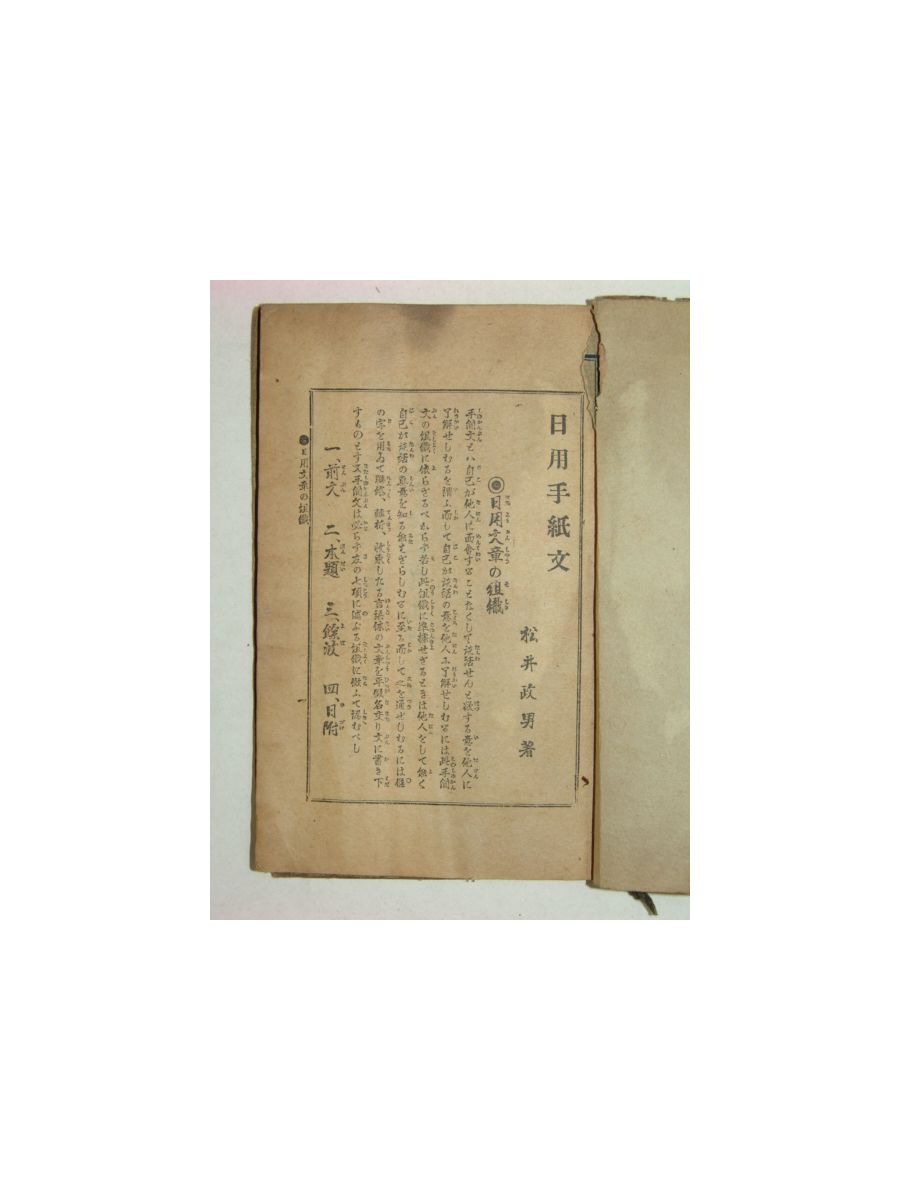 日用手紙文
松井政男著
◉日用文章の組織
手簡文とハ自己が他人に面會することなくして談話せんと欲する意を他人に
了解せしむるを謂ふ而して自己が談話の意を他人に了解せしむるには此手簡
文の組織に依らざるべからず若し此組織に準據せざるときは他人をして無く
自己が談話の眞意を知る能はざらしむるに至る而して之を通ぜしむるには
の字を用ゐて聯絡、転折、收束したる言語体の文章を平假名交り文に書き下
すものとす又手簡文は必らず左の七項に述ぶる組織に倣ふて認むべし
一、前文 二、本題 三、餘波 四、日附
日用文章の組織
一